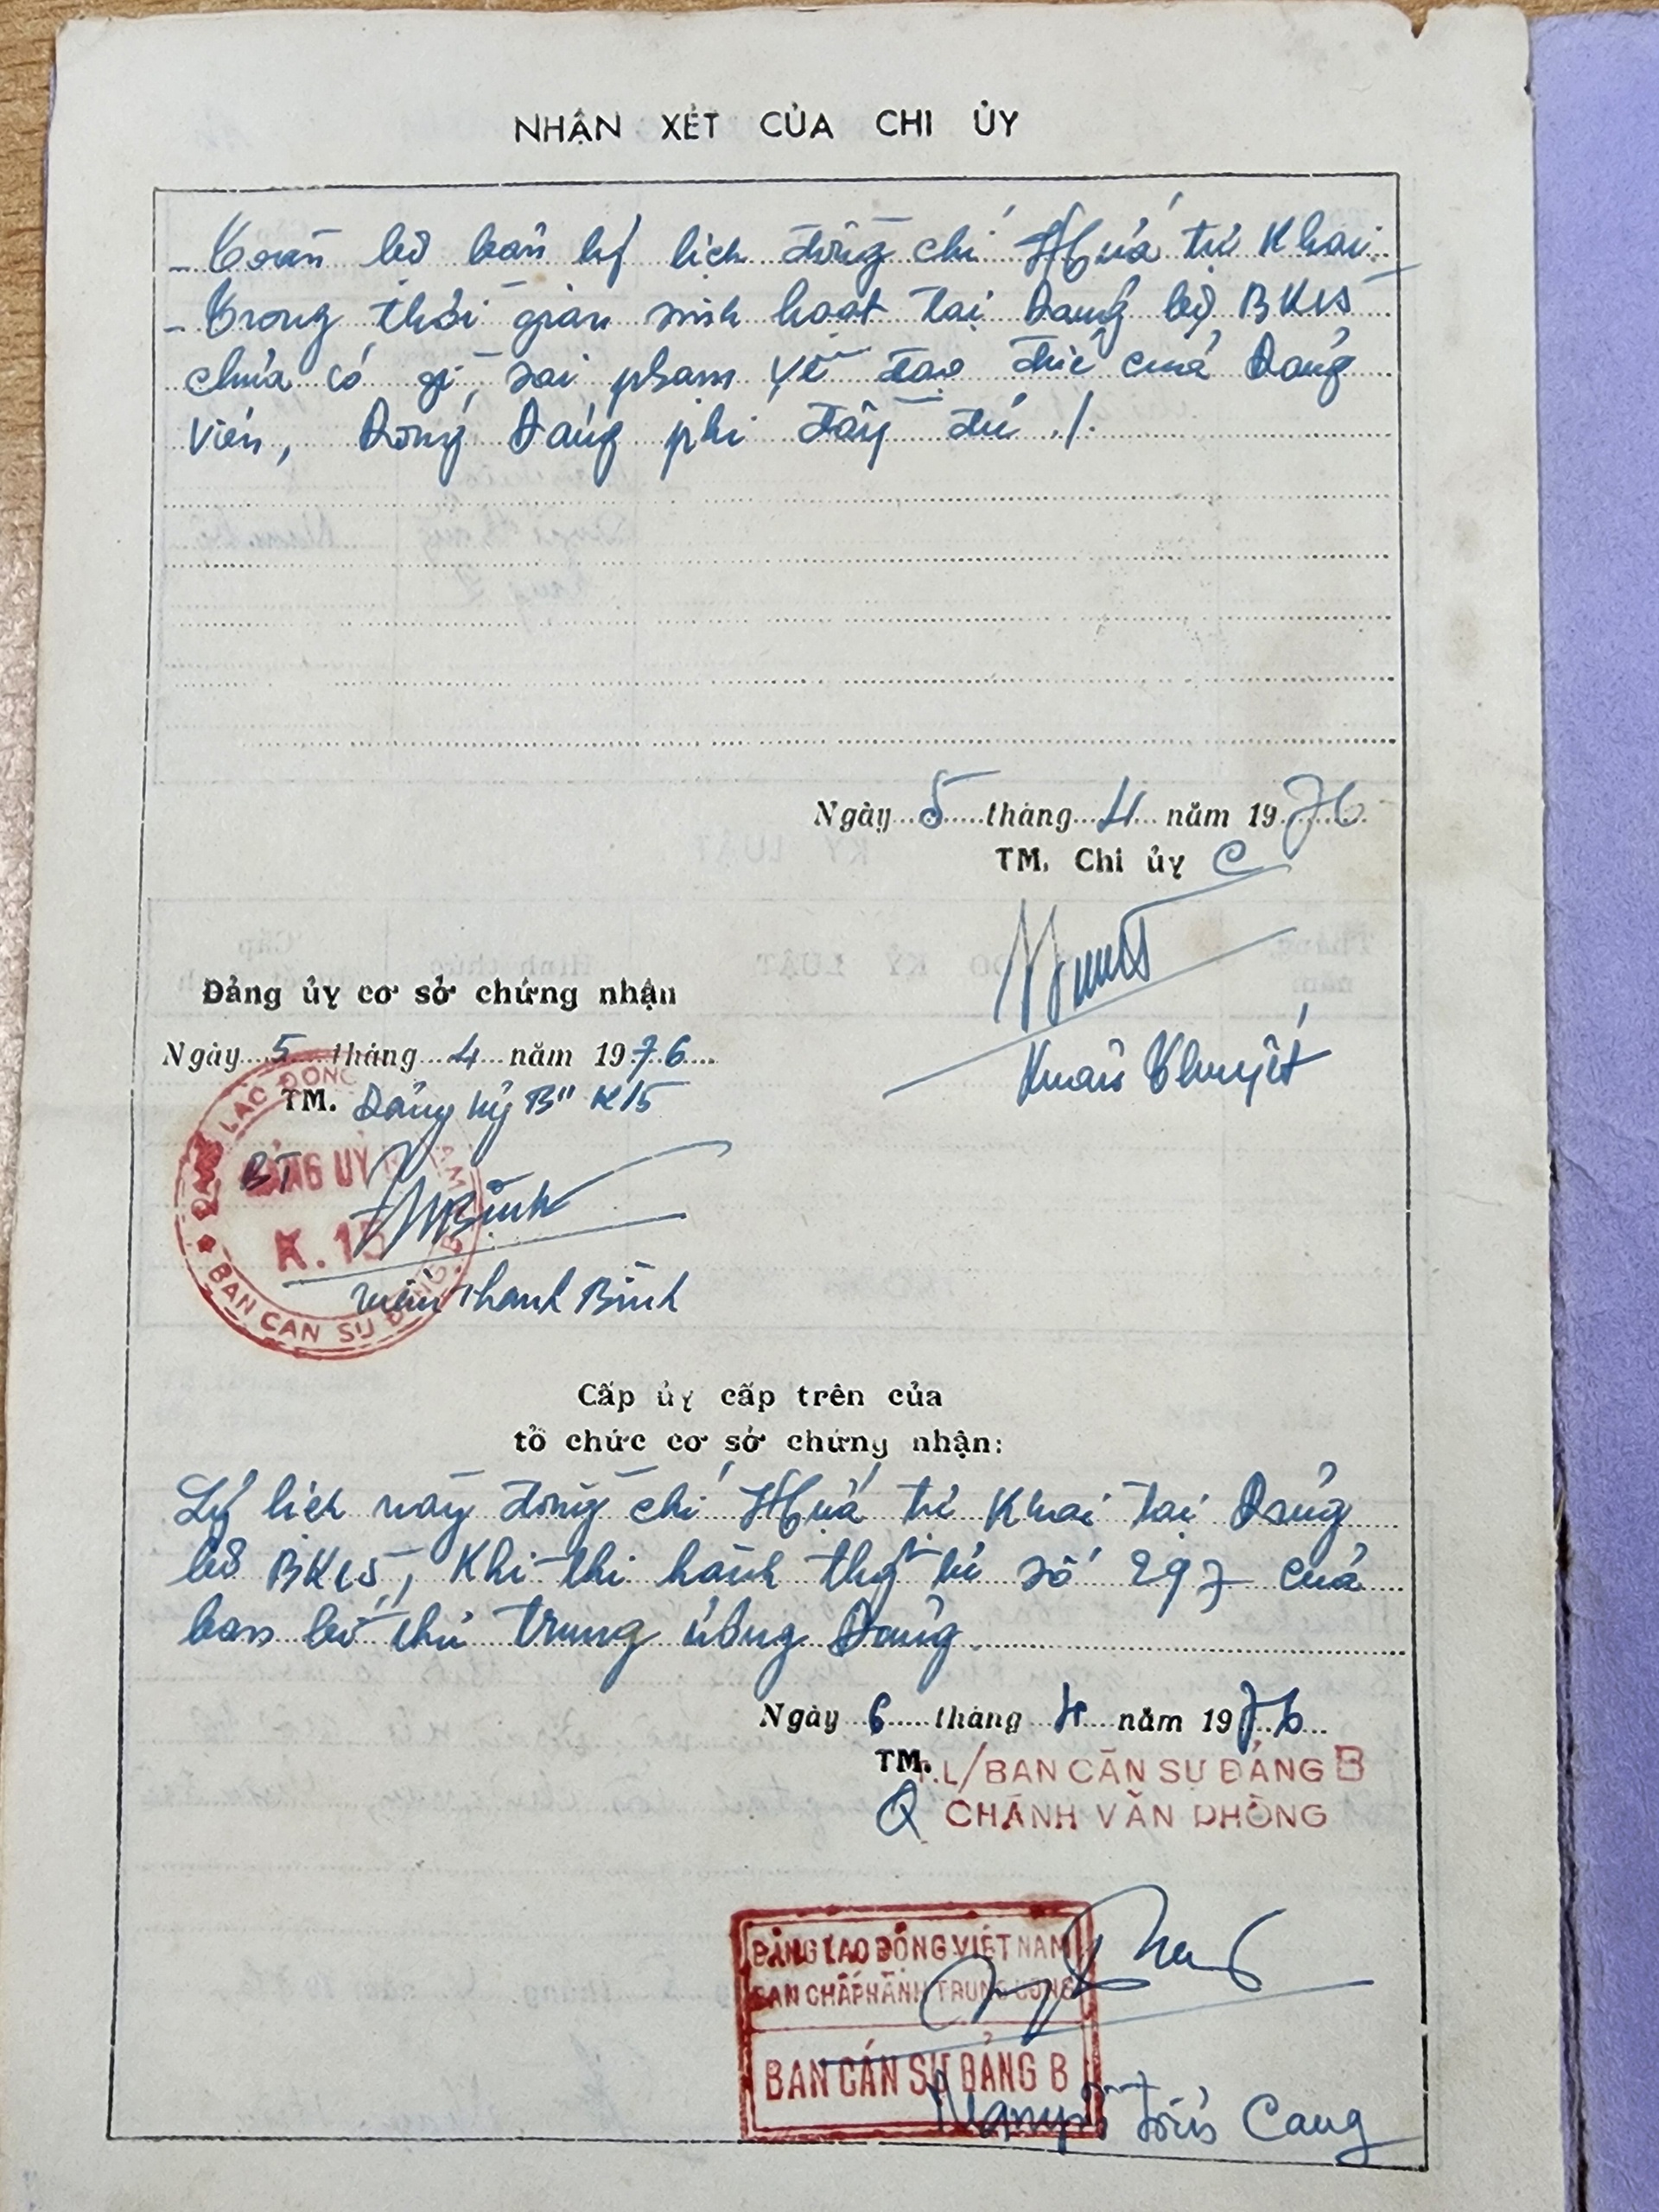 NHẬN XÉT CỦA CHI ỦY
- Toàn bộ bản lý lịch đồng chí Hứa tự Khai.
- Trong thời gian sinh hoạt tại Đảng bộ BK15
chưa có gì sai phạm về đạo đức của Đảng
viên, Đóng Đảng phí đầy đủ ./.
Ngày 5 tháng 4 năm 1976
TM. Chi ủy C
Xuân Thuyết
Đảng ủy cơ sở chứng nhận
Ngày 5 tháng 4 năm 1976
TM. Đảng ủy B" K15
BT
ĐẢNG LAO ĐỘNG
ĐẢNG ỦY
K.15
BAN CÁN SỰ ĐẢNG B
Bình
Thanh Bình
Cấp ủy cấp trên của
tổ chức cơ sở chứng nhận:
Lý lịch này đồng chí Hứa tự Khai tại Đảng
bộ BK15, Khi thi hành thị số 297 của
ban bí thư trung ương Đảng
Ngày 6 tháng 4 năm 1976
TM. T.L/BAN CÁN SỰ ĐẢNG B
Q CHÁNH VĂN PHÒNG
ĐẢNG LAO ĐỘNG VIỆT NAM
BAN CHẤP HÀNH TRUNG ƯƠNG
BAN CÁN SỰ ĐẢNG B
Nguyễn Cang